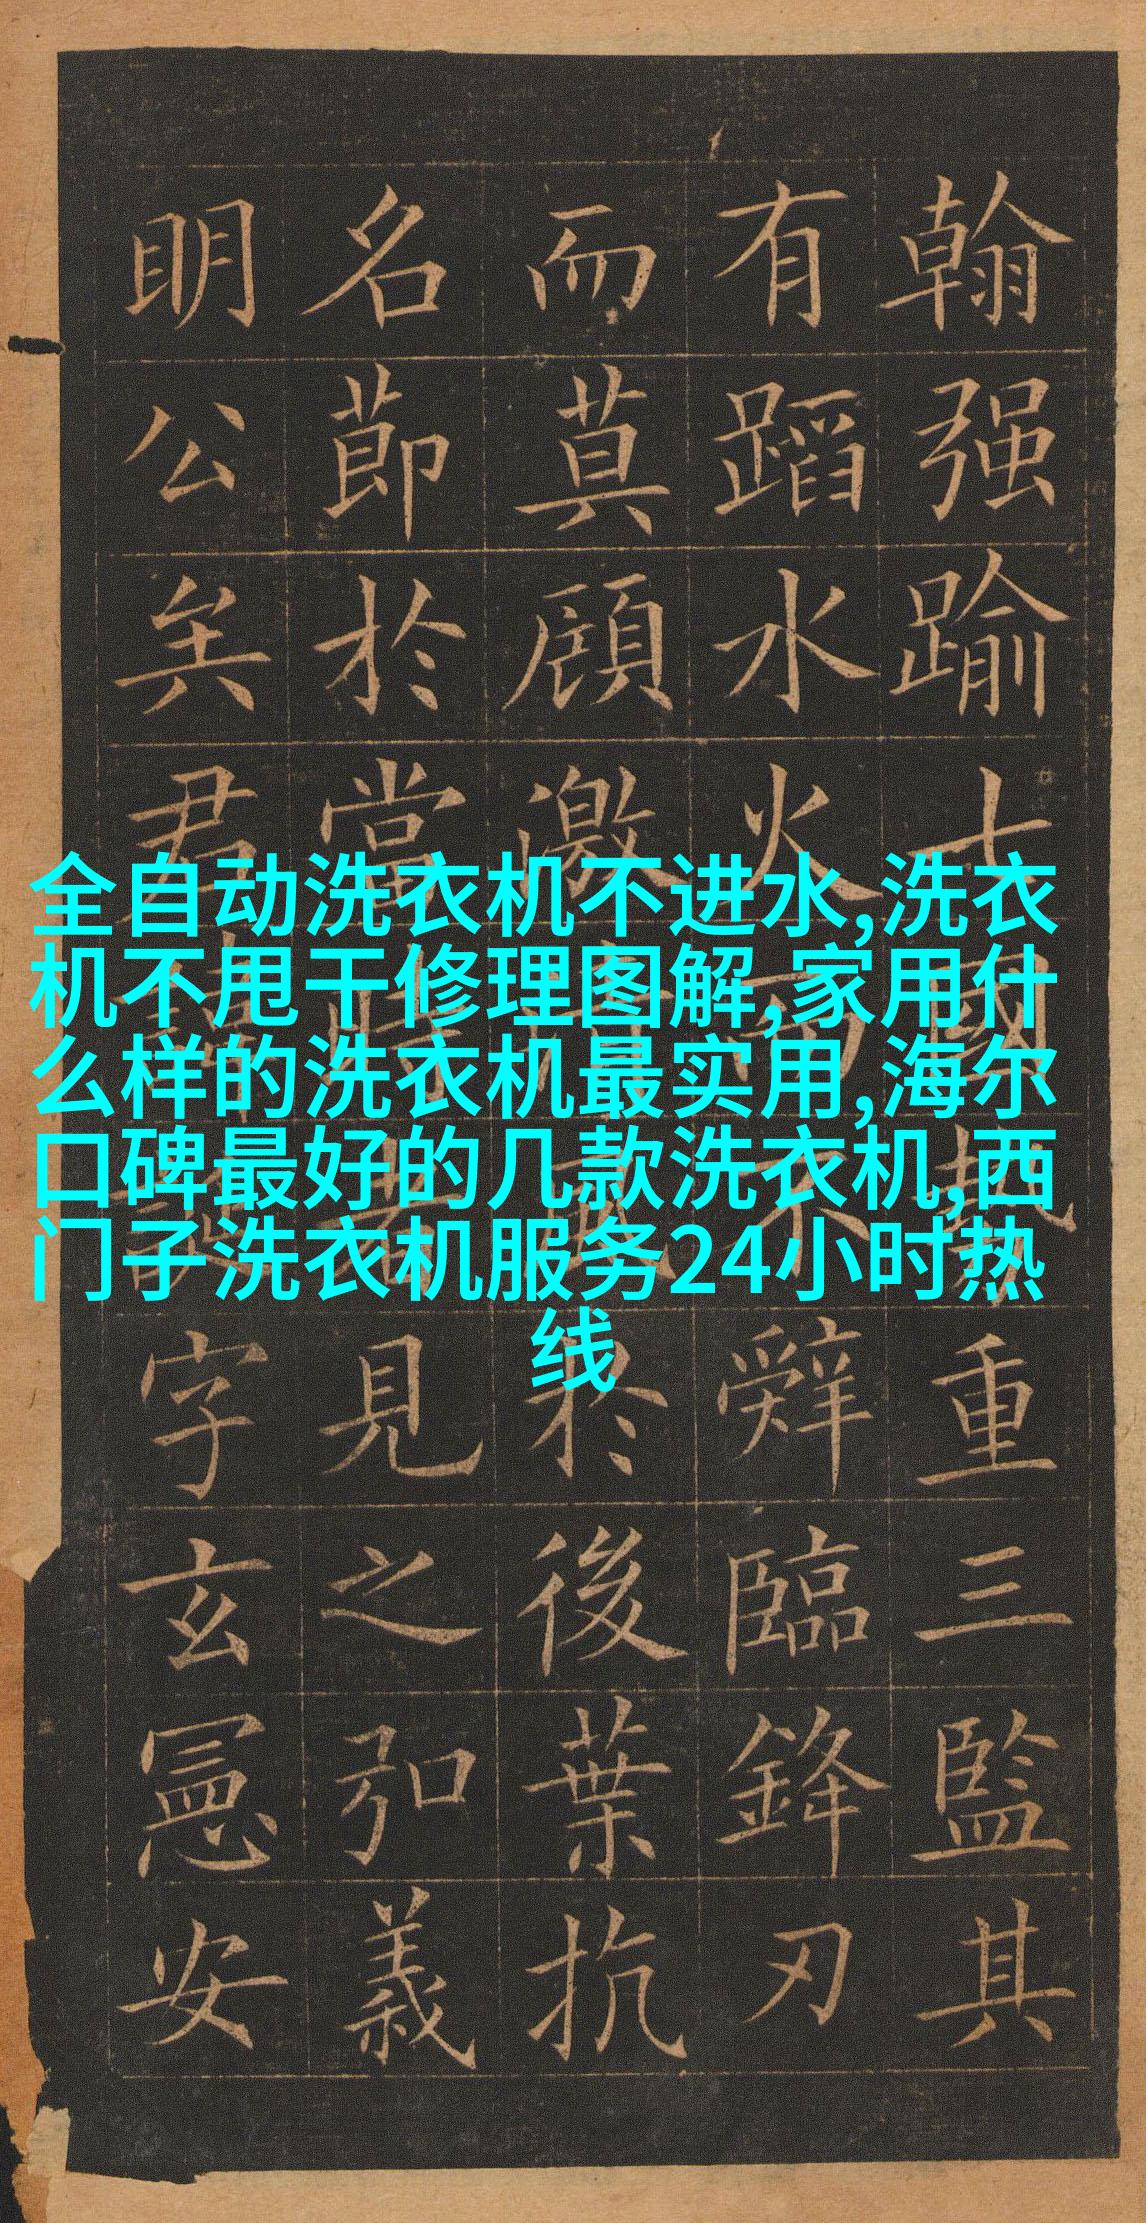 全自动洗衣机不进水,洗衣
机不甩干修理图解,家用什
么样的洗衣机最实用,海尔
口碑最好的几款洗衣机,西
门子洗衣机服务24小时热
线
翰强踰七國勢重三監其
有蹈水火而不辤臨鋒刃
而莫顧激於後葉抗
名節於當時者見之弘義
明公矣君諱誕字玄憲安